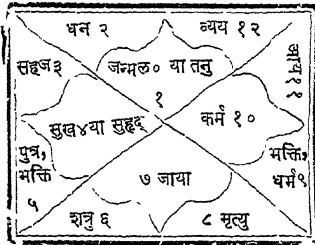 धन २
व्यय १२
सहज३
जन्मल० या तनु
१
आय११
सुख४या सुहृद्
कर्म १०
पुत्र,
भक्ति
५
भक्ति,
धर्म९
७ जाया
शत्रु ६
८ मृत्यु